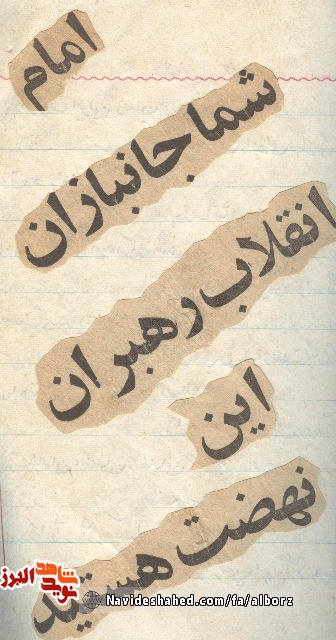 امام
شما جانبازان
انقلاب رهبران
این
نهضت هستید
نوید شاهد البرز
Navideshahed.com/fa/alborz